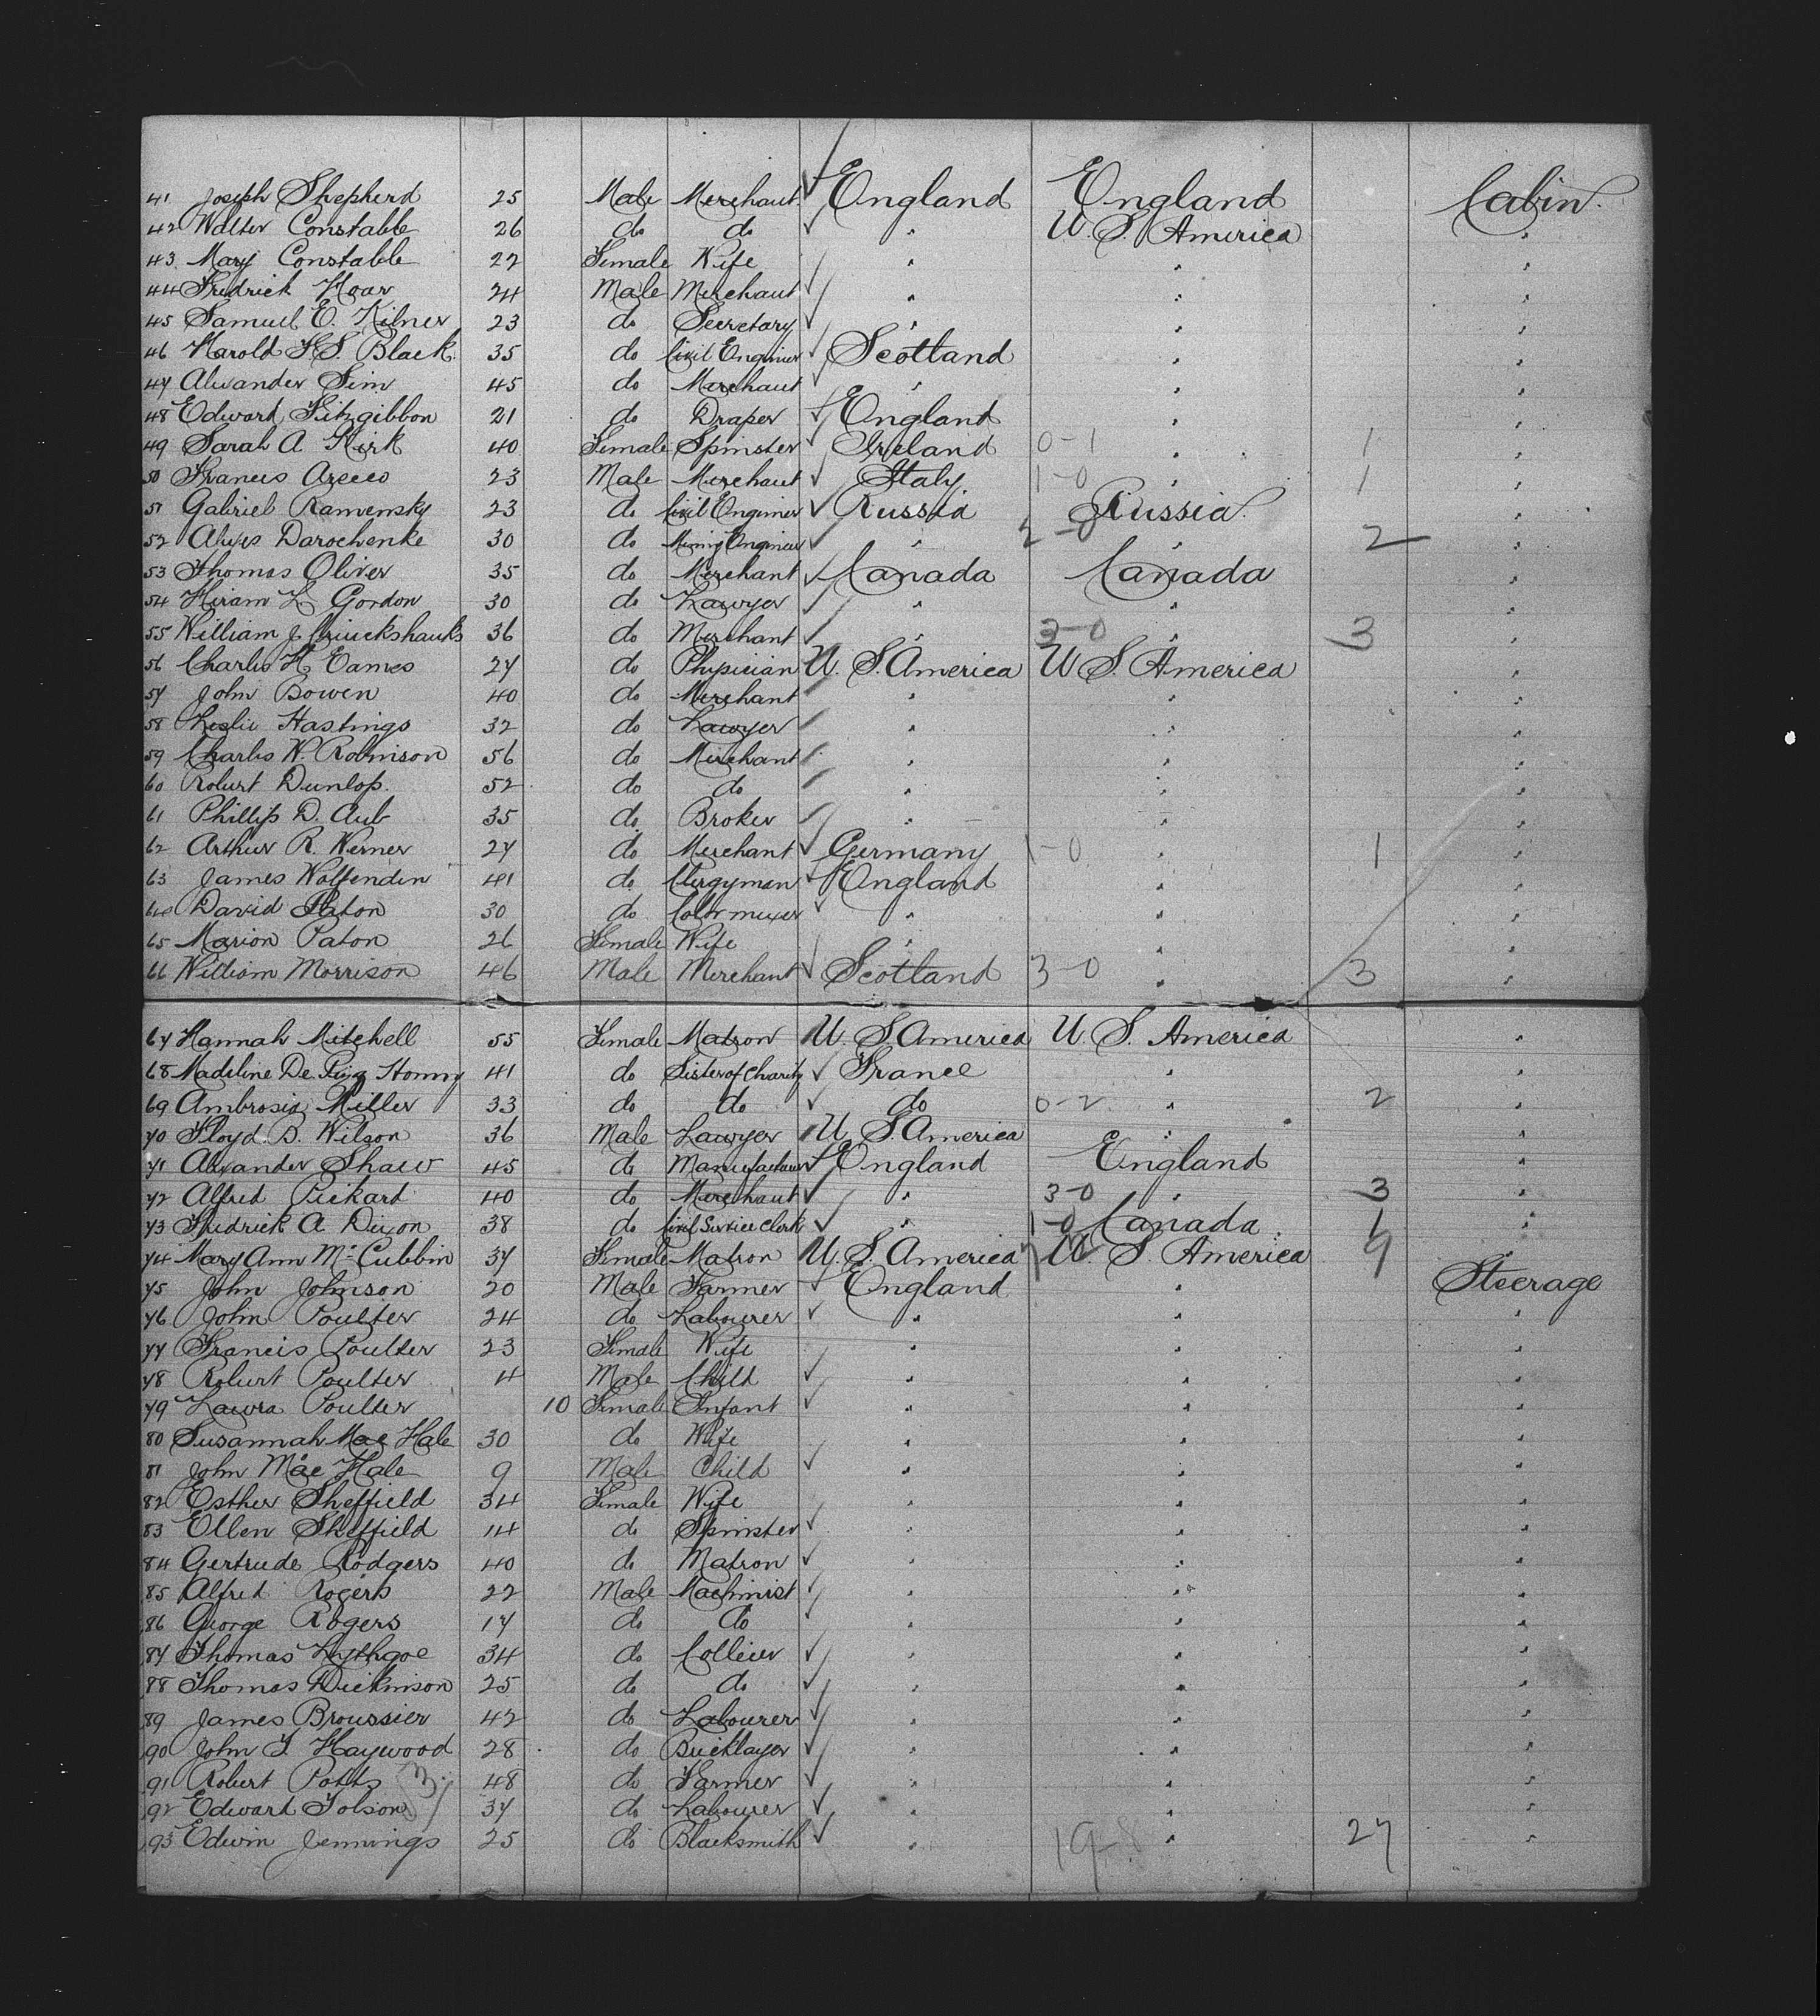 41 Joseph Shepherd 25 Male Merchant England England Cabin
42 Walter Constable 26 do do " U. S. America "
43 Mary Constable 22 Female Wife " " "
44 Fredrick Hoar 24 Male Merchant " " "
45 Samuel E. Kilner 23 do Secretary " " "
46 Harold F.S. Black 35 do Civil Engineer Scotland " "
47 Alexander Sim 45 do Merchant " " "
48 Edward Fitzgibbon 21 do Draper England " "
49 Sarah A Kirk 40 Female Spinster Ireland 0-1 " 1 "
50 Francis 23 Male Merchant Italy 1-0 " 1 "
51 Gabriel Ramensky 23 do Civil Engineer Russia Russia "
52 Darochenke 30 do Mining Engineer " 2-0 " 2 "
53 Thomas Oliver 35 do Merchant Canada Canada "
54 Hiram L Gordon 30 do Lawyer " " "
55 William J Cruickshanks 36 do Merchant " 3-0 " 3 "
56 Charles H. Eames 27 do Physician U. S. America U S. America "
57 John Bowen 40 do Merchant " " "
58 Leslie Hastings 32 do Lawyer " " "
59 Charles W. Robinson 56 do Merchant " " "
60 Robert Dunlop. 52 do do " " "
61 Phillip D. Aub 35 do Broker " " "
62 Arthur R. Werner 27 do Merchant Germany 1-0 " 1 "
63 James Wolfenden 41 do Clergyman England " "
64 David Paton 30 do Color mixer " " "
65 Marion Paton 26 Female Wife " " "
66 William Morrison 46 Male Merchant Scotland 3-0 " 3 "
67 Hannah Mitchell 55 Female Matron U. S America U S. America "
68 Madeline De 41 do Sister of Charity France " "
69 Ambrosia Miller 33 do do do 0-2 " 2 "
70 Floyd B. Wilson 36 Male Lawyer U. S. America " "
71 Alexander Shaw 45 do Manufacturer England England "
72 Alfred Pickard 40 do Merchant " 3-0 " 3 "
73 Fredrick A Dixon 38 do Civil Service Clerk " 1-0 Canada 1 "
74 Mary Ann Mc Cubbin 37 Female Matron U. S. America U. S. America 9 "
75 John Johnson 20 Male Farmer England " Steerage
76 John Poulter 24 do Labourer " " "
77 Francis Poulter 23 Female Wife " " "
78 Robert Poulter 4 Male Child " " "
79 Laura Poulter 10 Female Infant " " "
80 Susannah Mac Hale 30 do Wife " " "
81 John Mac Hale 9 Male Child " " "
82 Esther Sheffield 34 Female Wife " " "
83 Ellen Sheffield 14 do Spinster " " "
84 Gertrude Rodgers 40 do Matron " " "
85 Alfred Rogers 22 Male Machinist " " "
86 George Rogers 17 do do " " "
87 Thomas Lythgoe 34 do Collier " " "
88 Thomas Dickinson 25 do do " " "
89 James Broussier 42 do Labourer " " "
90 John T. Haywood 28 do Bricklayer " " "
91 Robert Potts 48 do Farmer " " "
92 Edward Tolson 37 do Labourer " " "
93 Edwin Jennings 25 do Blacksmith " 19-8 " 27 "